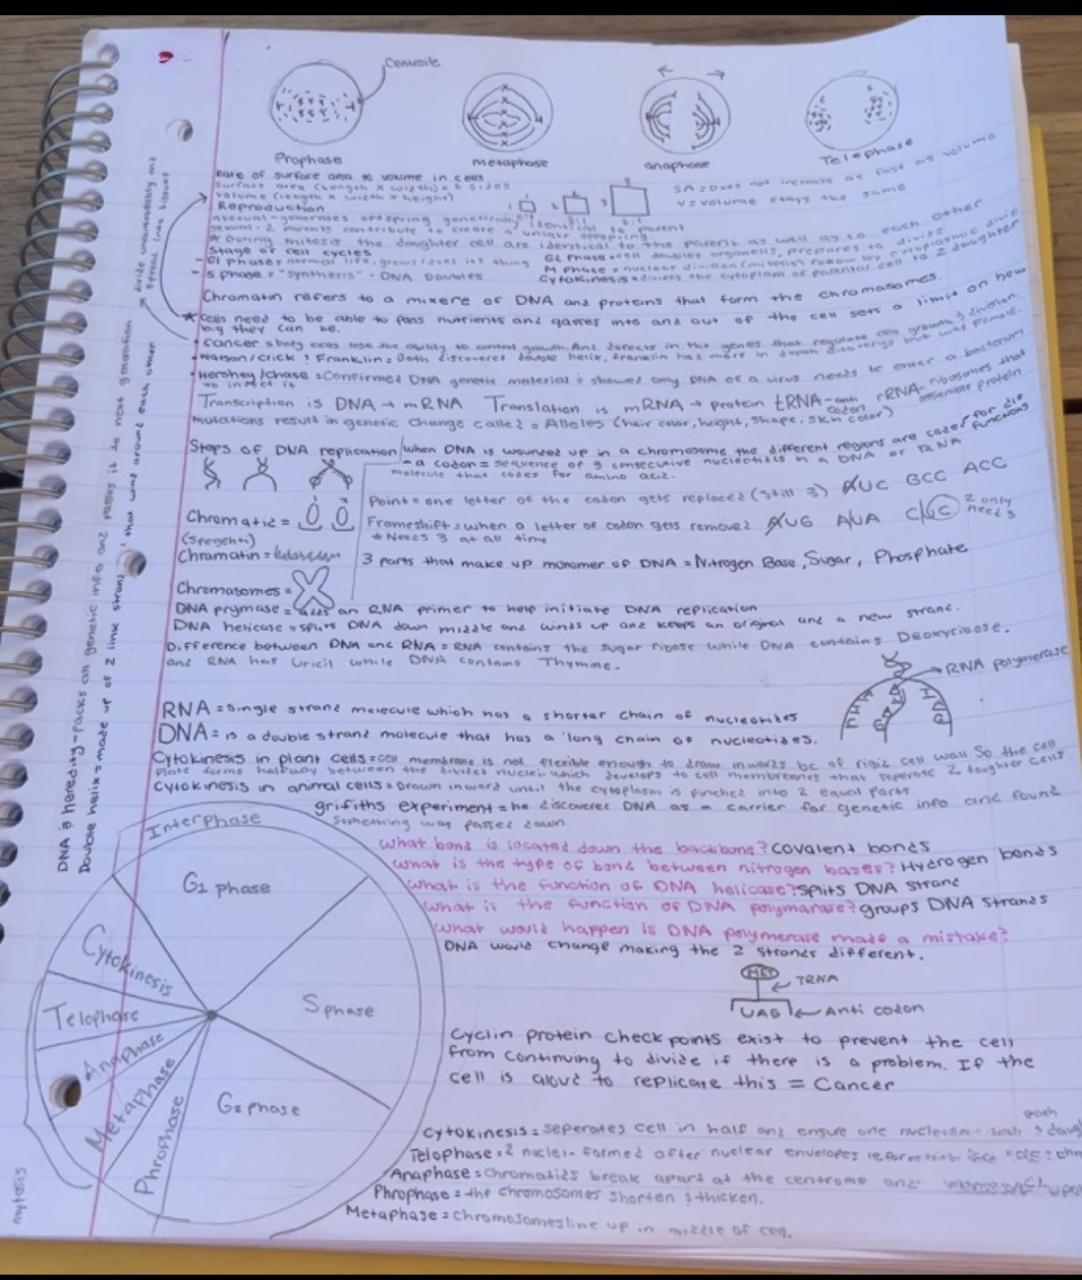 Centroile
Prophase
metaphase
anaphase
Telephase
Ratio of surface area to volume in cells
Surface area (length x width) x 6 sides
volume (length x width x height)
SA = Does not increase as fast as volume
V = volume stays the same
Reproduction
Asexual - generates offspring genetically identical to parent
sexual - 2 Parents contribute to create a unique
* During mitosis the daughter cell are identical to the parent as well as to each other
Stage of cell cycles
G1 phase = normal life, grows/does its thing
G2 Phase = cell doubles organells, prepares to divide
S phase = "Synthesis" - DNA Doubles
M phase = nuclear division follow by cytoplasmic
Cytokinesis = divides the cytoplasm of parental cell to 2 daughter
Chromatin refers to a mixere of DNA and proteins that form the chromasomes.
* Cells need to be able to pass nutrients and gasses into and out of the cell sets a limit on how
big they can be.
cancer = body cells lose the ability to control growth. And defects in the genes that regulate cell growth & division.
Watson/crick & Franklin = Both discovered double helix, franklin had more in depth but was female.
Hershey/chase = Confirmed DNA genetic material & showed only DNA of a virus needs to enter a bacterium
to infect it
Transcription is DNA → mRNA Translation is mRNA → protein tRNA - anti codon rRNA - ribosomes that assemble protein
mutations result in genetic change called = Alleles (hair color, height, shape, skin color)
Steps of DNA replication
when DNA is wounded up in a chromosome the different regions are coded for functions
- a codon = sequence of 3 consecutive nucleotides in a DNA or RNA
molecule that codes for amino acid.
Point = one letter of the codon gets replaced (still 3) AUC GCC ACC
Chromatid =
(Spegehti)
Frameshift = when a letter of codon gets removed AUG AUA
2 only need 3
* Needs 3 at all time
Chromatin =
3 parts that make up monomer of DNA = Nitrogen Base, Sugar, Phosphate
Chromasomes =
DNA prymase = adds an RNA primer to help initiate DNA replication
DNA helicase = splits DNA down middle and winds up and keeps an original and a new strand.
Difference between DNA and RNA = RNA contains the sugar ribose while DNA contains Deoxyribose.
and RNA has Uricil while DNA contains Thymine.
RNA polymerase
RNA = single strand molecule which has a shorter chain of nucleotides
DNA = is a double strand molecule that has a long chain of nucleotides.
Cytokinesis in plant cells = cell membrane is not flexible enough to draw inwards bc of rigid cell wall So the cell
plate forms halfway between the divided nuclei which develops to cell membrannes that seperate 2 daughter cells.
Cytokinesis in animal cells = Drawn inward until the cytoplasm is pinched into 2 equal parts
grifiths experiment = he discovered DNA as a carrier for genetic info and found
something was passed down
What bond is located down the backbone? Covalent bonds
what is the type of bond between nitrogen bases? Hydrogen bonds
what is the function of DNA helicase? splits DNA strand
what is the function of DNA polymarase? groups DNA strands
What would happen is DNA polymerase made a mistake?
DNA would change making the 2 strands different.
MET
TRNA
UAG
Anti codon
Cyclin protein check points exist to prevent the cell
from continuing to divide if there is a problem. If the
cell is aloud to replicate this = Cancer
Cytokinesis = seperates cell in half and ensure one nucleus
each
Telophase = 2 nuclei formed after nuclear envelopes
Anaphase = Chromatids break apart at the centrome and
Phrophase = the chromosomes shorten & thicken.
Metaphase = chromosomes line up in middle of cell.
Interphase
G1 phase
S phase
G2 phase
Cytokinesis
Telophase
Anaphase
Metaphase
Phrophase
mytosis
DNA is heredity - packs all genetic info and passes it to next generation
Double helix = made up of 2 link strand that wind around each other
divide uncontrollably and
spread into tissues